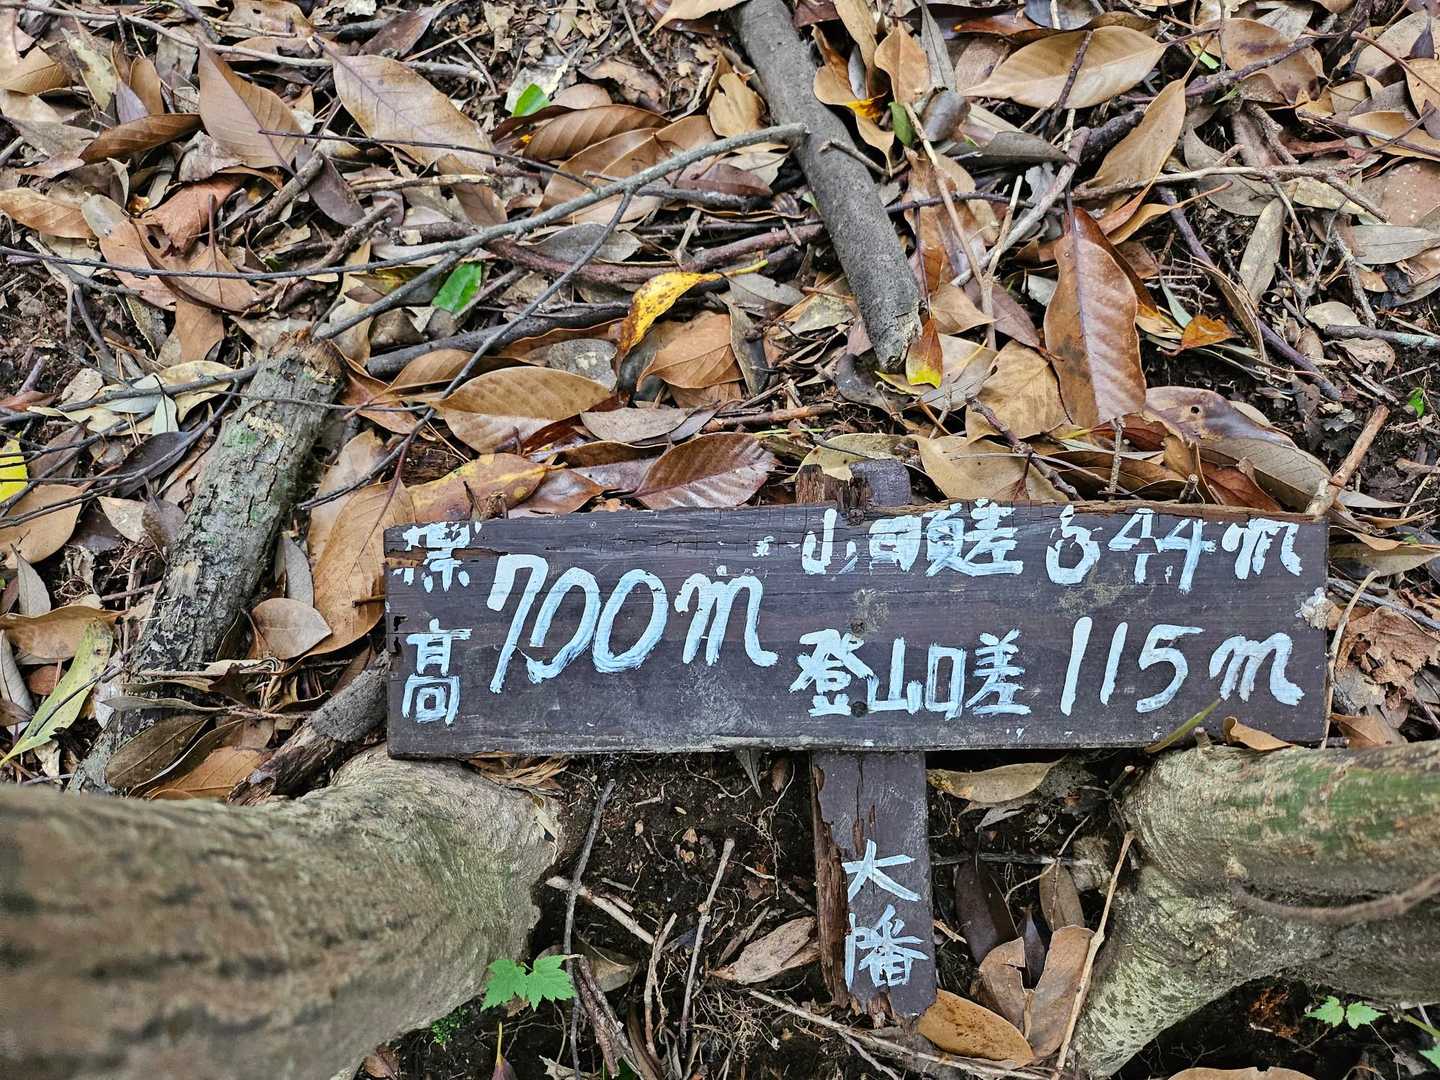 標高 700m
山頂差 644m
登山口差 115m
大幡